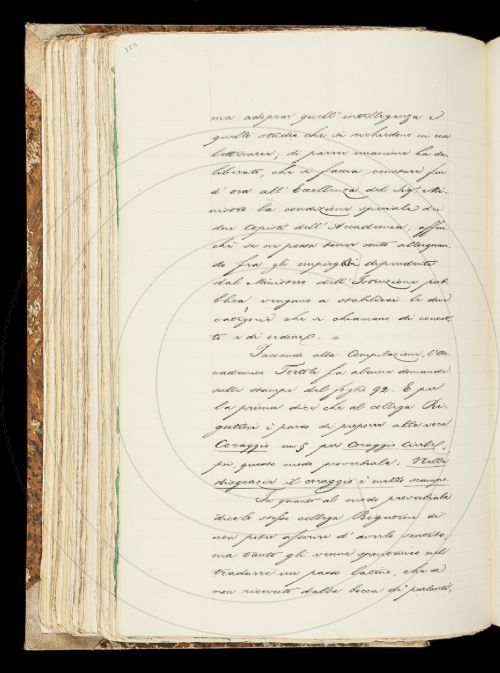 350
ma adoprar quell' intelligenza e
quello studio che si richiedono in cose
letterarie, di parere unanime ha de-
liberato, che si faccia conoscere fin
d' ora all' Eccellenza del Sig.r Mi-
nistro la condizione speciale dei
due Copisti dell' Accademia, affin-
chè se ne possa tener conto allorquan-
do fra gli impieghi dipendenti
dal Ministero dell' Istruzione pub-
blica vengano a stabilirsi le due
categorie che si chiamano di concet-
to e di ordine. =
Passando alla Compilazione, l'Ac-
cademico Tortoli fa alcune domande
sulle stampe del foglio 92. E per
la prima dice che al collega Ri-
gutini è parso di proporre alla voce
Coraggio un § per Coraggio civile,
poi questo modo proverbiale. Nelle
disgrazie il coraggio è mezzo scampo.
In quanto al modo proverbiale
dice lo stesso collega Rigutini di
non poter asserire d' averlo sentito,
ma tanto gli venne spontaneo nel
tradurre un passo latino, che se
non ricevuto dalla bocca di parlanti,